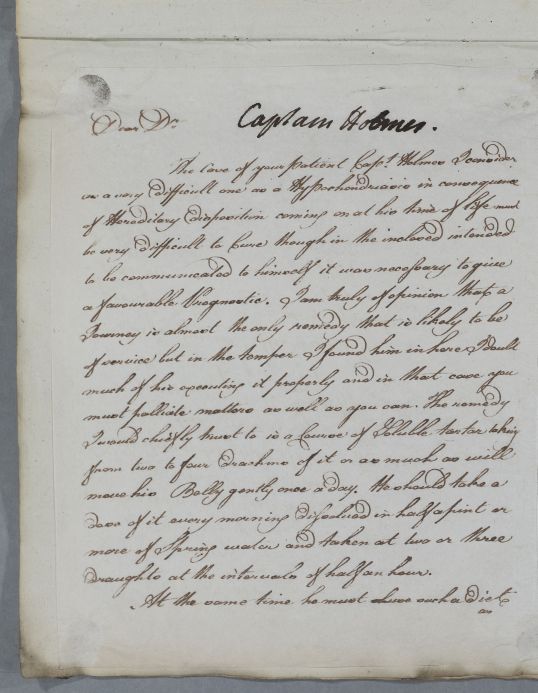 Captain Holmes.
Dear Dr.
The Case of your Patient Capt. Holmes I consider
as a very difficult one as a Hypochondriasis in consequence
of Hereditary disposition coming on at his time of life must
be very difficult to Cure though in the inclosed intended
to be communicated to himself it was necessary to give
a favourable Prognostic. I am truly of opinion that a
Journey is almost the only remedy that is likely to be
of service but in the temper I found him in here I doubt
much of his executing it properly and in that case you
must palliate matters as well as you can. The remedy
I would chiefly trust to is a Course of Soluble tartar taking
from two to four drachms of it or as much as will
move his Belly gently once a day. He should take a
dose of it every morning dissolved in half a pint or
more of Spring water and taken at two or three
draughts at the intervals of half an hour.
At the same time he must have such a diet
as